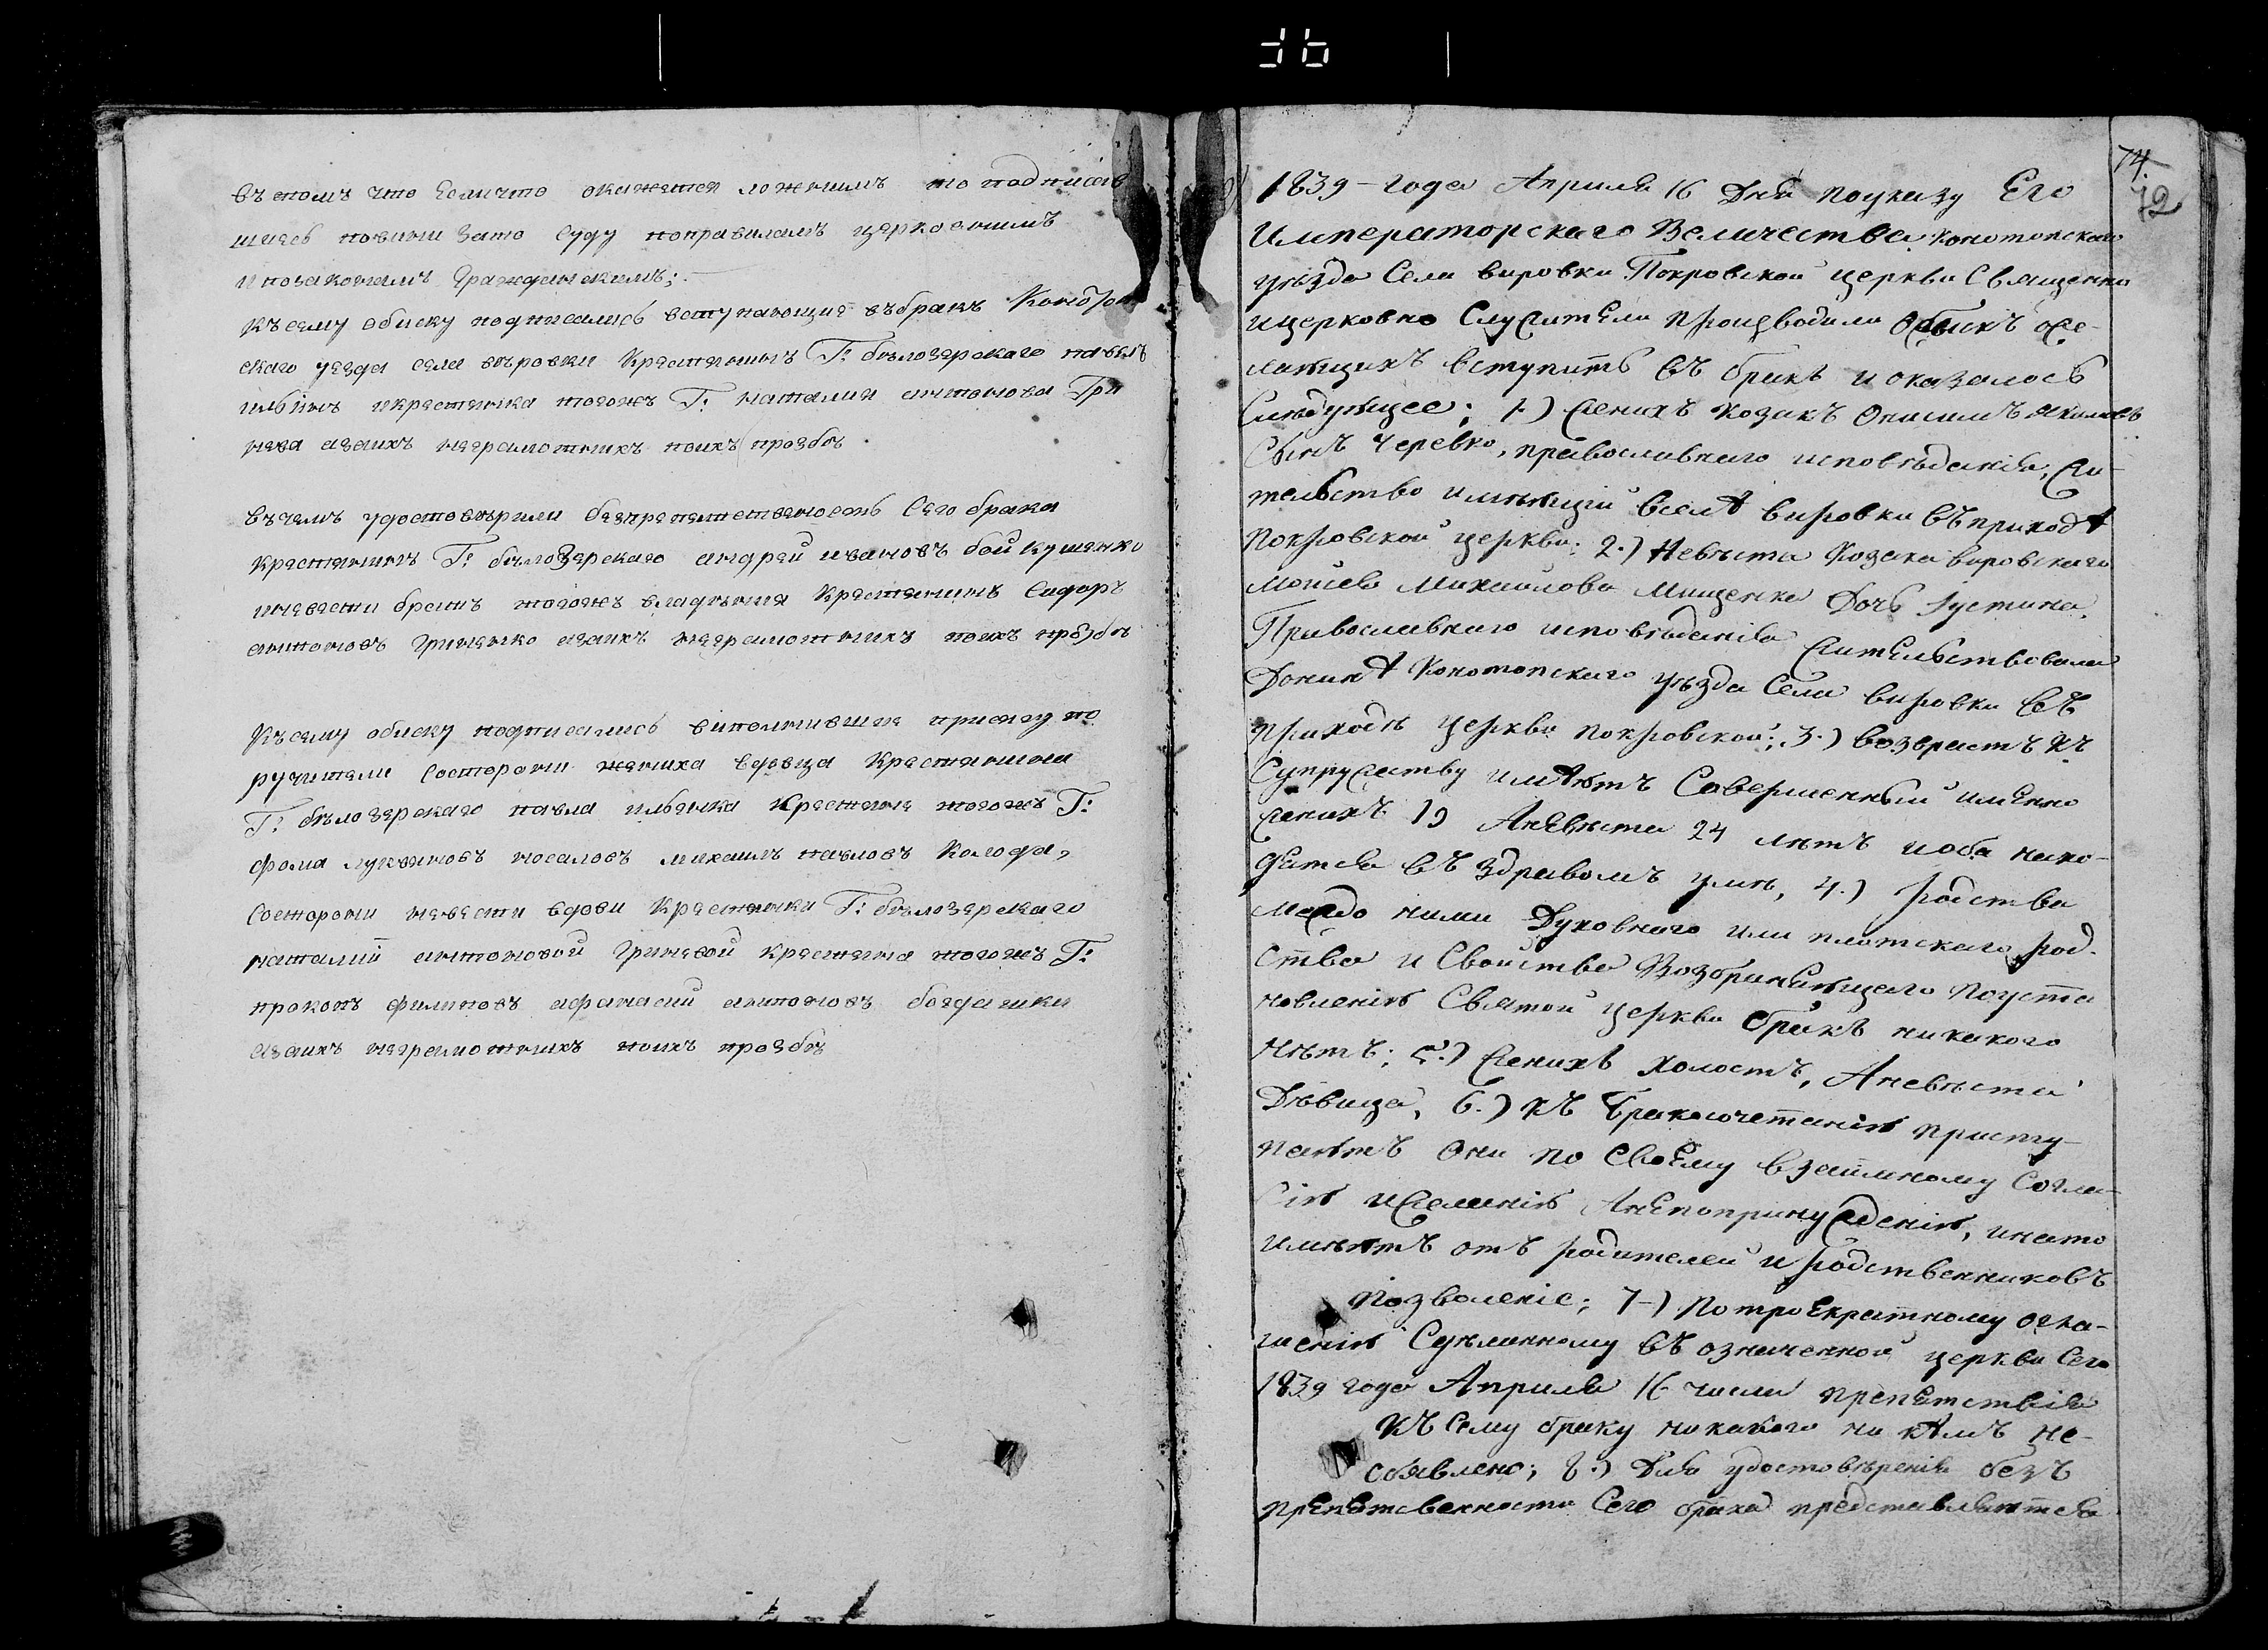 въ томъ что Если что окажется ложнымъ то подписав
шиесь повинни зато суду поправиламъ церковнимъ
и позаконамъ Гражданскимъ;
Къ сему обиску подписались вступающия въ бракъ Коното
скаго уезда села вировки Крестянинъ Г: бѣлозерскаго павелъ
ильинъ икрестянка тогожъ Г: наталия антонова Гри
нева азаихъ неграмотнихъ поихъ прозбѣ
Въ чемъ удостовѣрили безпрепятственость Сего брака
крестянинъ Г: бѣлозерскаго андрей ивановъ бойкушенко
иневести братъ тогожъ владѣния Крестянинъ Сидоръ
антоновъ Гриненко азаихъ неграмотнихъ поихъ прозбѣ
Къ сему обиску подписались виполнившия присягу по
ручители Состороны жениха вдовца Крестянина
Г: бѣлозерскаго павла ильенка Крестяне тогожъ Г:
фома лукяновъ носаловъ михаилъ павловъ Колода,
Состороны невести вдови Крестянки Г: бѣлозерскаго
наталий антоновой Гриневой крестяна тогожъ Г:
прокопъ филиповъ афанасий антоновъ богдашки
азаихъ неграмотнихъ поихъ прозбѣ
74.
72
1839 – года Априля 16 Дня поуказу Его
Императорскаго Величества конотопскаго
уѣзда Села вировки Покровской церкви Священно
ицерковно Служители производили Обыскъ оже-
лающихъ вступить въ бракъ и оказалось
Слѣдующее; 1.) женихъ козакъ Онисимъ Якимовъ
Сынъ Черевко, православнаго исповѣданія, жи-
тельство имѣющій вселѣ вировки въ приходѣ
покровской церкви; 2.) Невѣста Козака вировскаго
Моисея Михайлова Мищенка Дочь Іустина,
Православнаго исповѣданія жительствовала
Донинѣ Конотопскаго уѣзда Села вировки въ
приходѣ церкви покровской; 3.) возврастъ къ
Супружеству имѣютъ Совершенный именно
женихъ 19 Аневѣста 24 лѣтъ иоба нахо-
дятся въ здравомъ умѣ, 4.) родства
междо ними Духовнаго или плотскаго род-
ства и Свойства Возбраняющаго поуста
новленію Святой церкви бракъ никакого
нѣтъ; 5.) женихъ холостъ, Аневѣста
Дѣвица, 6.) къ Бракосочетанію присту-
паютъ Они по Своему взаимному Согла-
сію ижеланію Анепопринужденію, инато
имѣютъ отъ родителей и родственниковъ
позволеніе; 7-) Потроекратному огла-
шенію Сдѣланному въ означенной церкви Сего
1839 года Априля 16 числа препятствія
къ Сему браку никакого ни кѣмъ не-
объявлено; 8.) Для удостовѣренія безъ
препятсвенности Сего брака представляются